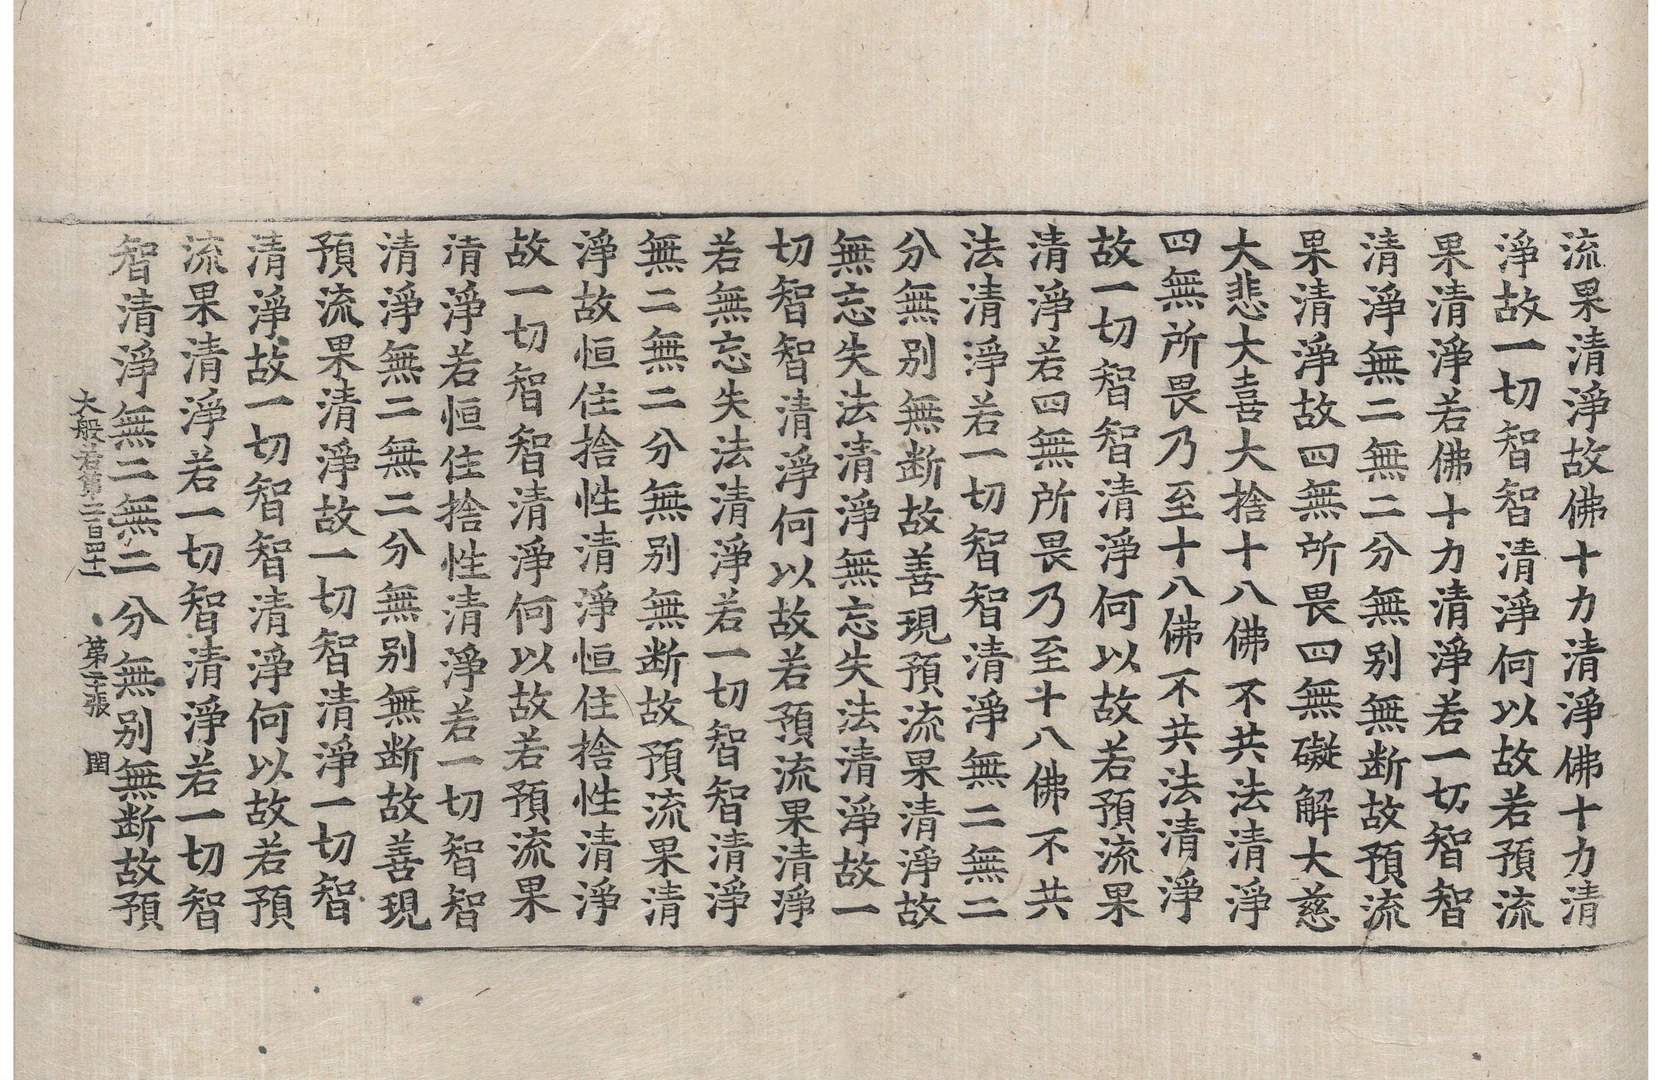 流果清淨故佛十力清淨佛十力清
淨故一切智智清淨何以故若預流
果清淨若佛十力清淨若一切智智
清淨無二無二分無别無断故預流
果清淨故四無所畏四無礙解大慈
大悲大喜大捨十八佛不共法清淨
四無所畏乃至十八佛不共法清淨
故一切智智清淨何以故若預流果
清淨若四無所畏乃至十八佛不共
法清淨若一切智智清淨無二無二
分無别無断故善現預流果清淨故
無忘失法清淨無忘失法清淨故一
切智智清淨何以故若預流果清淨
若無忘失法清淨若一切智智清淨
無二無二分無别無断故預流果清
淨故恒住捨性清淨恒住捨性清淨
故一切智智清淨何以故若預流果
清淨若恒住捨性清淨若一切智智
清淨無二無二分無别無断故善現
預流果清淨故一切智清淨一切智
清淨故一切智智清淨何以故若預
流果清淨若一切智清淨若一切智
智清淨無二無二分無别無断故預
大般若第二百四十一 第三張 閏